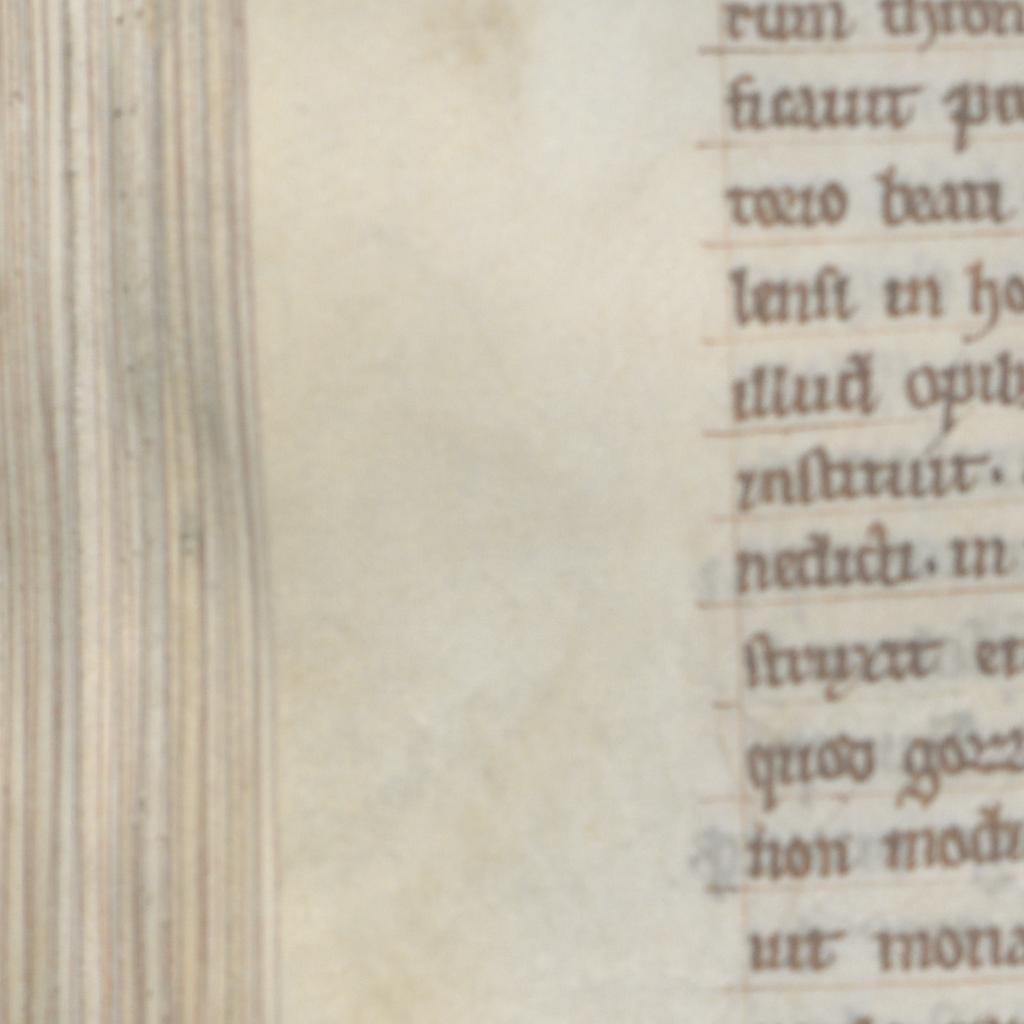 rum thron
ficauit po
toreo beati
lensi in ho
illud opib
instituit.
nedicti. in
struxit et
quod gozz
non modi
uit mona